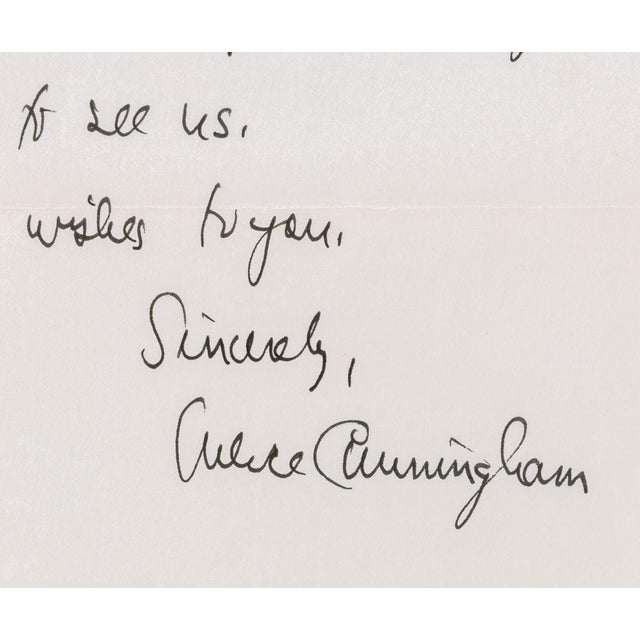 to see us.
wishes to you.
Sincerely,
Merce Cunningham